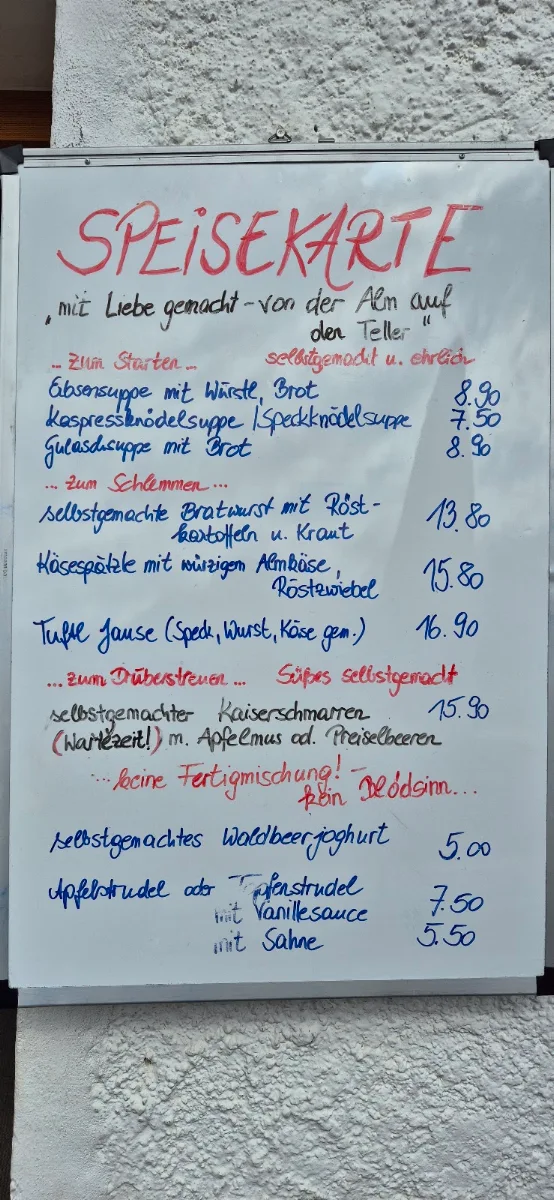 SPEiSEKARTE
„mit Liebe gemacht - von der Alm auf
den Teller"
... zum Starten ... selbstgemacht u. ehrlich
Erbsensuppe mit Würstl, Brot 8.90
Kaspressknödelsuppe / Speckknödelsuppe 7.50
Gulaschsuppe mit Brot 8.90
... zum Schlemmen ...
selbstgemachte Bratwurst mit Röst- 13.80
kartoffeln u. Kraut
Käsespätzle mit würzigem Almkäse, 15.80
Röstzwiebel
Jause (Speck, Wurst, Käse gem.) 16.90
... zum Drüberstreuen ... Süßes selbstgemacht
selbstgemachter Kaiserschmarren 15.90
(Wartezeit!) m. Apfelmus od. Preiselbeeren
... keine Fertigmischung! -
kein Blödsinn...
selbstgemachtes Waldbeerjoghurt 5.00
Apfelstrudel oder Topfenstrudel
mit Vanillesauce 7.50
mit Sahne 5.50